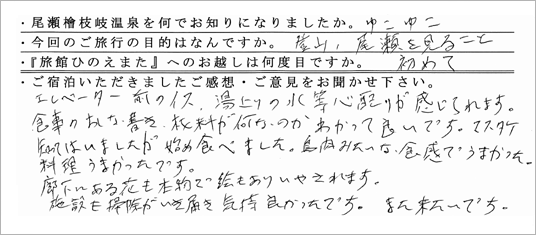 ・尾瀬檜枝岐温泉を何でお知りになりましたか。ゆこゆこ
・今回のご旅行の目的はなんですか。登山,尾瀬を見ること
・『旅館ひのえまた』へのお越しは何度目ですか。初めて
・ご宿泊いただきましたご感想・ご意見をお聞かせ下さい。
エレベーター前のイス、湯上りの水等心配りが感じられます。
食事のおしな書き、材料が何なのかわかって良いです。マスタケ
知ってはいましたが始め食べました。鳥肉みたいな食感でうまかった。
料理うまかったです。
廊下にある花も本物で絵もありいやされます。
施設も掃除がいき届き気持良かったです。また来たいです。